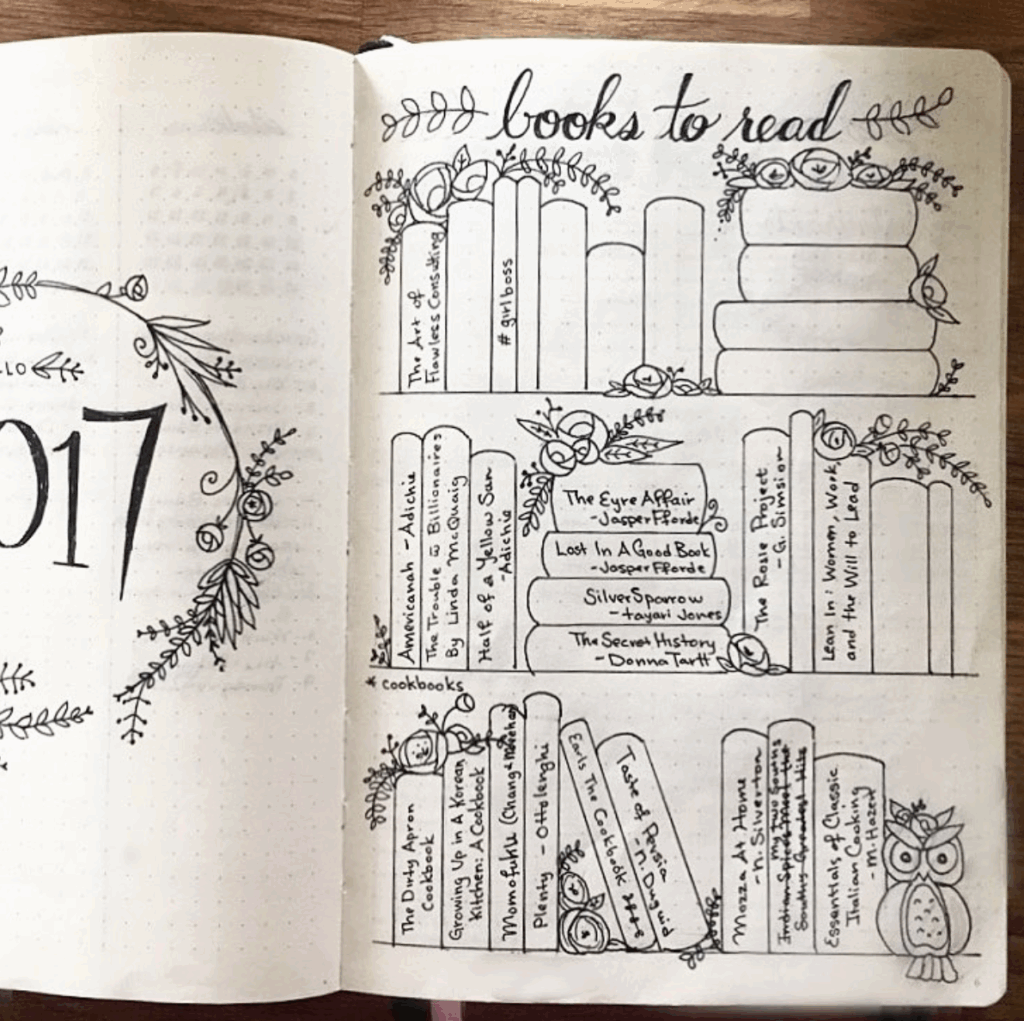 books to read
The Art of
Flawless Consulting
#girlboss
LO
017
Americanah - Adichie
The Trouble w Billionaires
By Linda McQuaig
Half of a Yellow Sun
-Adichie
The Eyre Affair
-Jasper Fforde
Lost In A Good Book
-Jasper Fforde
Silver Sparrow
-tayari Jones
The Secret History
-Donna Tartt
The Rosie Project
- G. Simsion
Lean In: Women, Work,
and the Will to Lead
* cookbooks
The Dirty Apron
Cookbook
Growing Up in A Korean
Kitchen: A Cookbook
Momofuku (Chang + Meehan)
Plenty - Ottolenghi
Earls The Cookbook
Taste of Persia
-N. Duguid
Mozza At Home
-N. Silverton
My Two Souths
Indian Spices Meet the
South's Greatest Hits
Essentials of Classic
Italian Cooking
-M. Hazen